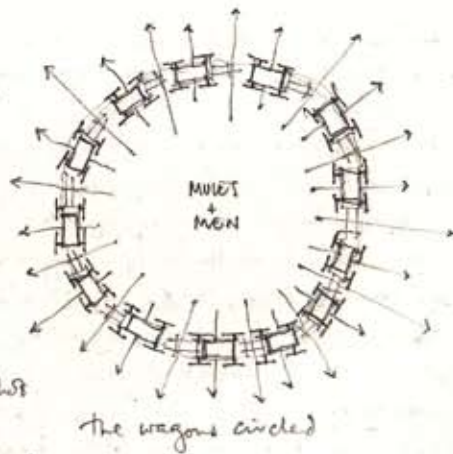 MULES
+
MEN
the wagons circled